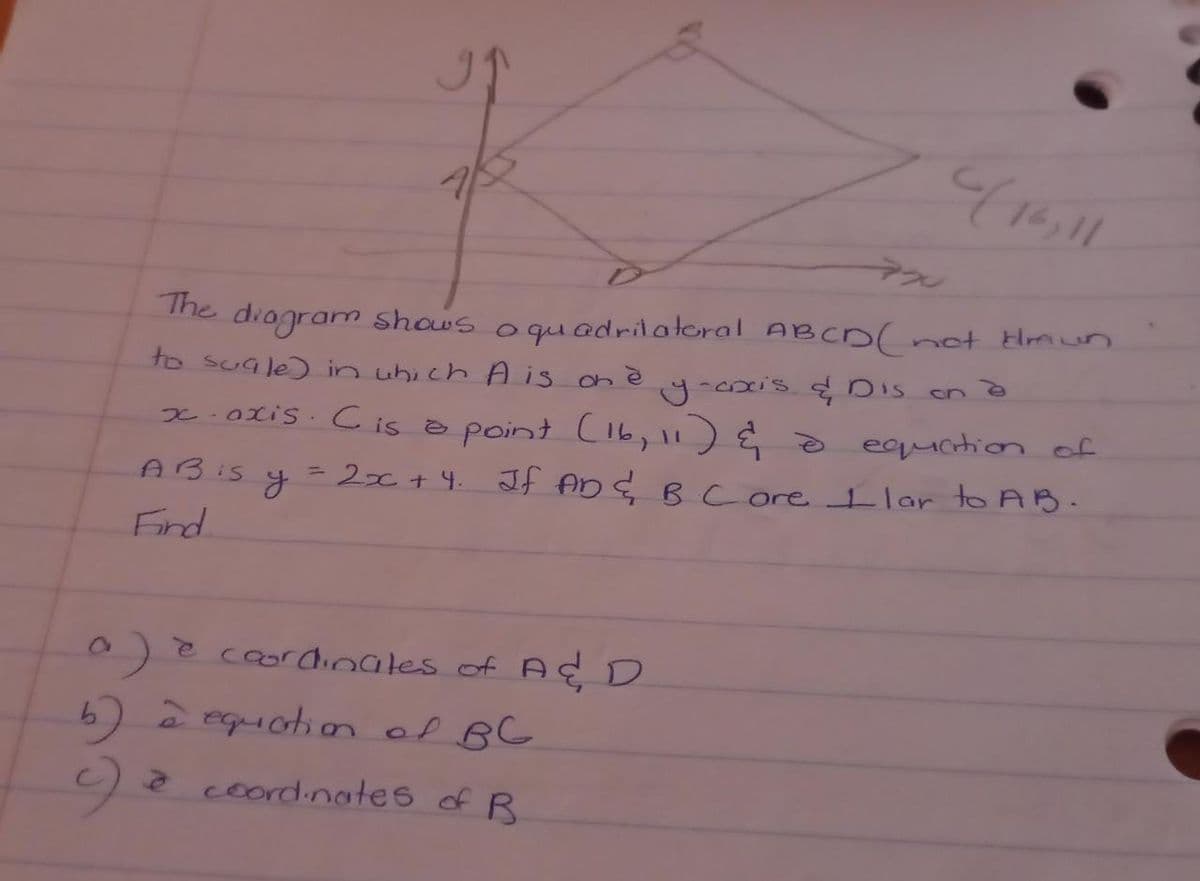 y
B
A
C(16,11
D
x
The diagram shows a quadrilateral ABCD( not drawn
to scale) in which A is on è y-axis & D is on è
x-axis. C is è point (16, 11) & è equation of
AB is y = 2x + 4. If AD & BC are ⊥lar to AB.
Find
a) è coordinates of A & D
b) è equation of BC
c) è coordinates of B